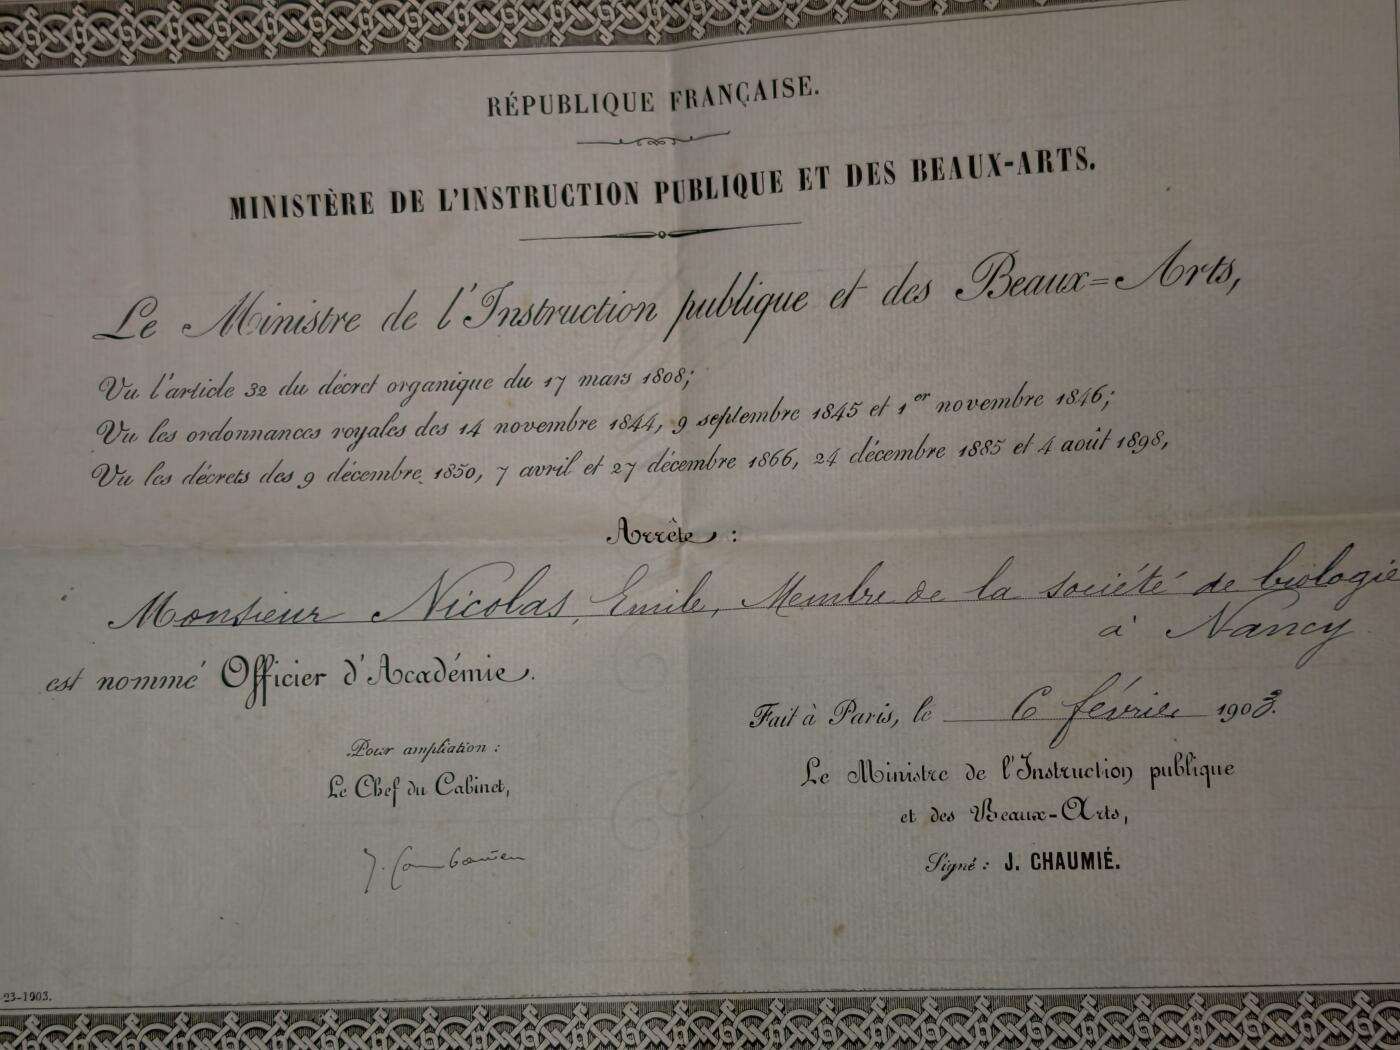 RÉPUBLIQUE FRANÇAISE.
MINISTÈRE DE L'INSTRUCTION PUBLIQUE ET DES BEAUX-ARTS.
Le Ministre de l'Instruction publique et des Beaux=Arts,
Vu l'article 32 du décret organique du 17 mars 1808;
Vu les ordonnances royales des 14 novembre 1844, 9 septembre 1845 et 1er novembre 1846;
Vu les décrets des 9 décembre 1850, 7 avril et 27 décembre 1866, 24 décembre 1885 et 4 août 1898,
Arrête :
Monsieur Nicolas, Emile, Membre de la société de biologie
à Nancy
est nommé Officier d'Académie.
Fait à Paris, le 6 février 1903.
Pour ampliation :
Le Chef du Cabinet,
Le Ministre de l'Instruction publique
et des Beaux-Arts,
Signé : J. CHAUMIÉ.
-23-1903.